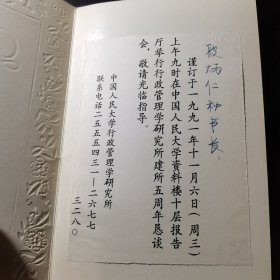 段炳仁秘书长
谨订于一九九一年十一月六日(周三)
上午九时在中国人民大学资料楼十层报告
厅举行行政管理学研究所建所五周年恳谈
会,敬请光临指导。
中国人民大学行政管理学研究所
联系电话二五五五四三一—二六七七
三二八〇